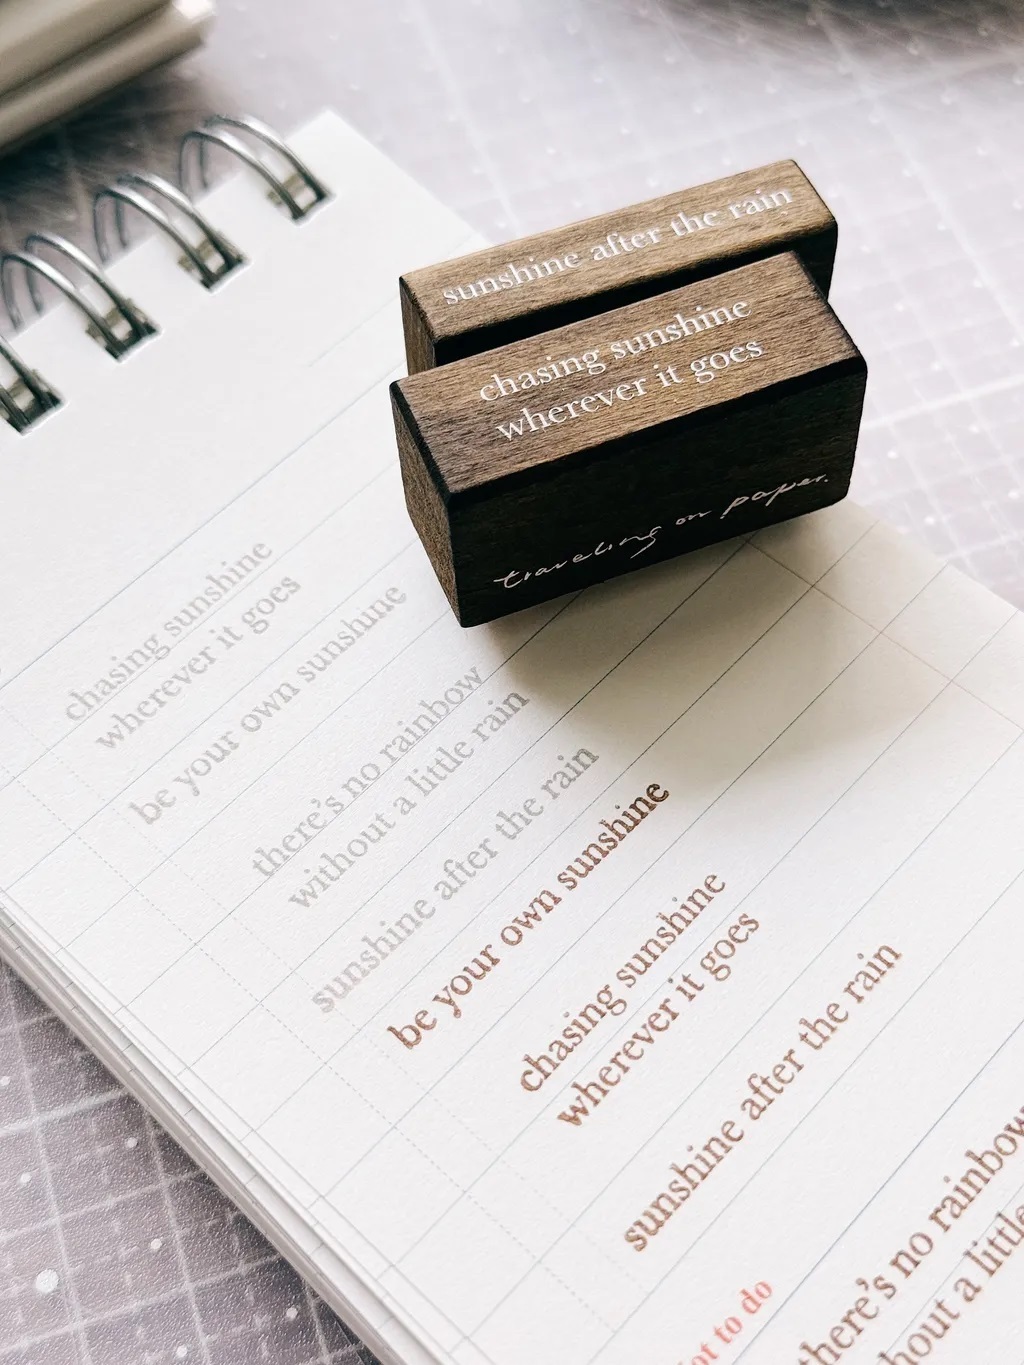 sunshine after the rain
chasing sunshine
wherever it goes
traveling on paper.
chasing sunshine
wherever it goes
be your own sunshine
there's no rainbow
without a little rain
sunshine after the rain
be your own sunshine
chasing sunshine
wherever it goes
sunshine after the rain
there's no rainbow
a little
to do